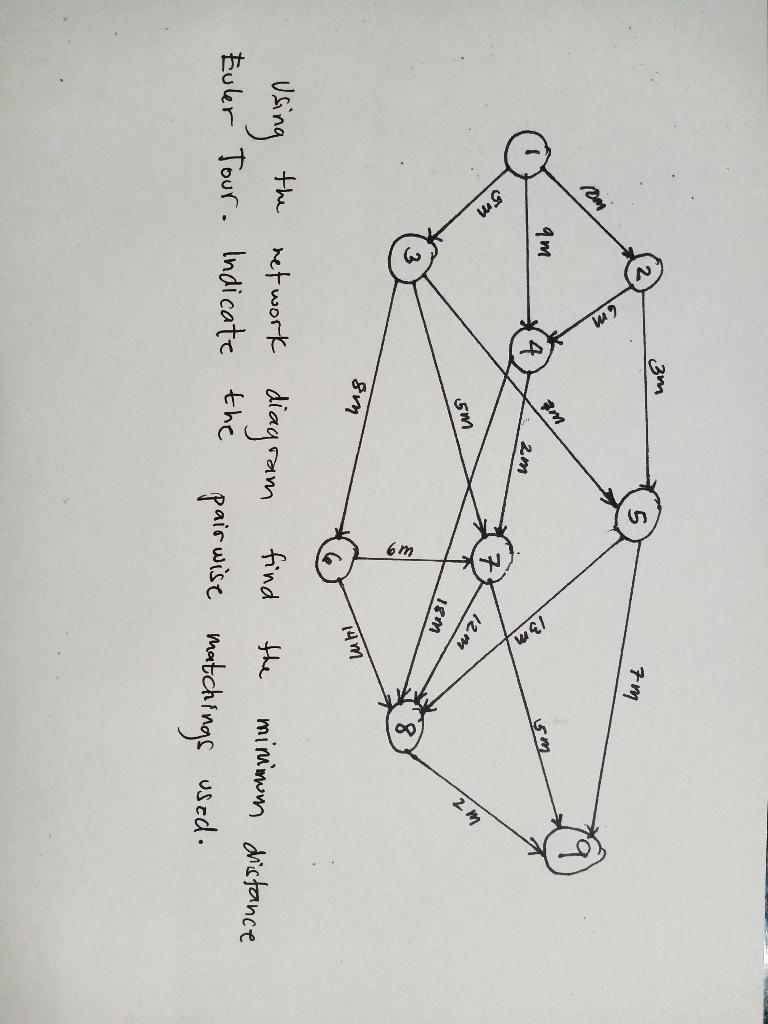 2
3m
5
7m
10m
6m
9
1
9m
4
2m
13m
5m
7
5m
5m
12m
2m
18m
3
8
6m
8m
14m
6
Using the network diagram find the minimum distance
Euler Tour. Indicate the pairwise matchings used.